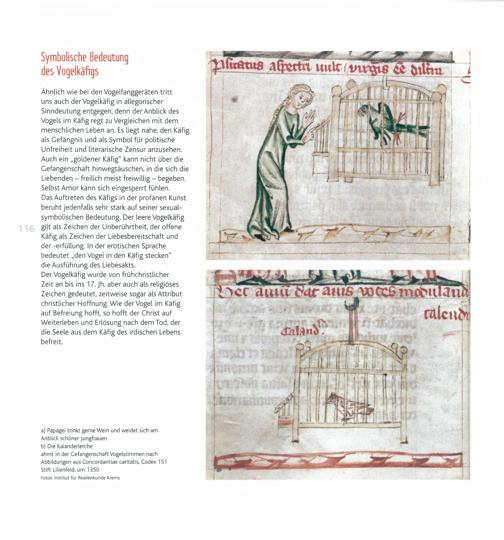 Symbolische Bedeutung
des Vogelkäfigs
Ähnlich wie bei den Vogelfanggeräten tritt
uns auch der Vogelkäfig in allegorischer
Sinndeutung entgegen, denn der Anblick des
Vogels im Käfig regt zu Vergleichen mit dem
menschlichen Leben an. Es liegt nahe, den Käfig
als Gefängnis und als Symbol für politische
Unfreiheit und literarische Zensur anzusehen.
Auch ein „goldener Käfig" kann nicht über die
Gefangenschaft hinwegtäuschen, in die sich die
Liebenden – freilich meist freiwillig – begeben.
Selbst Amor kann sich eingesperrt fühlen.
Das Auftreten des Käfigs in der profanen Kunst
beruht jedenfalls sehr stark auf seiner sexual-
symbolischen Bedeutung. Der leere Vogelkäfig
gilt als Zeichen der Unberührtheit, der offene
Käfig als Zeichen der Liebesbereitschaft und
der -erfüllung. In der erotischen Sprache
bedeutet „den Vogel in den Käfig stecken"
die Ausführung des Liebesakts.
Der Vogelkäfig wurde von frühchristlicher
Zeit an bis ins 17. Jh. aber auch als religiöses
Zeichen gedeutet, zeitweise sogar als Attribut
christlicher Hoffnung. Wie der Vogel im Käfig
auf Befreiung hofft, so hofft der Christ auf
Weiterleben und Erlösung nach dem Tod, der
die Seele aus dem Käfig des irdischen Lebens
befreit.
116
a) Papagei trinkt gerne Wein und weidet sich am
Anblick schöner Jungfrauen
b) Die Kalanderlerche
ahmt in der Gefangenschaft Vogelstimmen nach
Abbildungen aus Concordantiae caritatis, Codex 151
Stift Lilienfeld, um 1350
Fotos: Institut für Realienkunde Krems
aspectum vult virgis
dat avis voces
calend